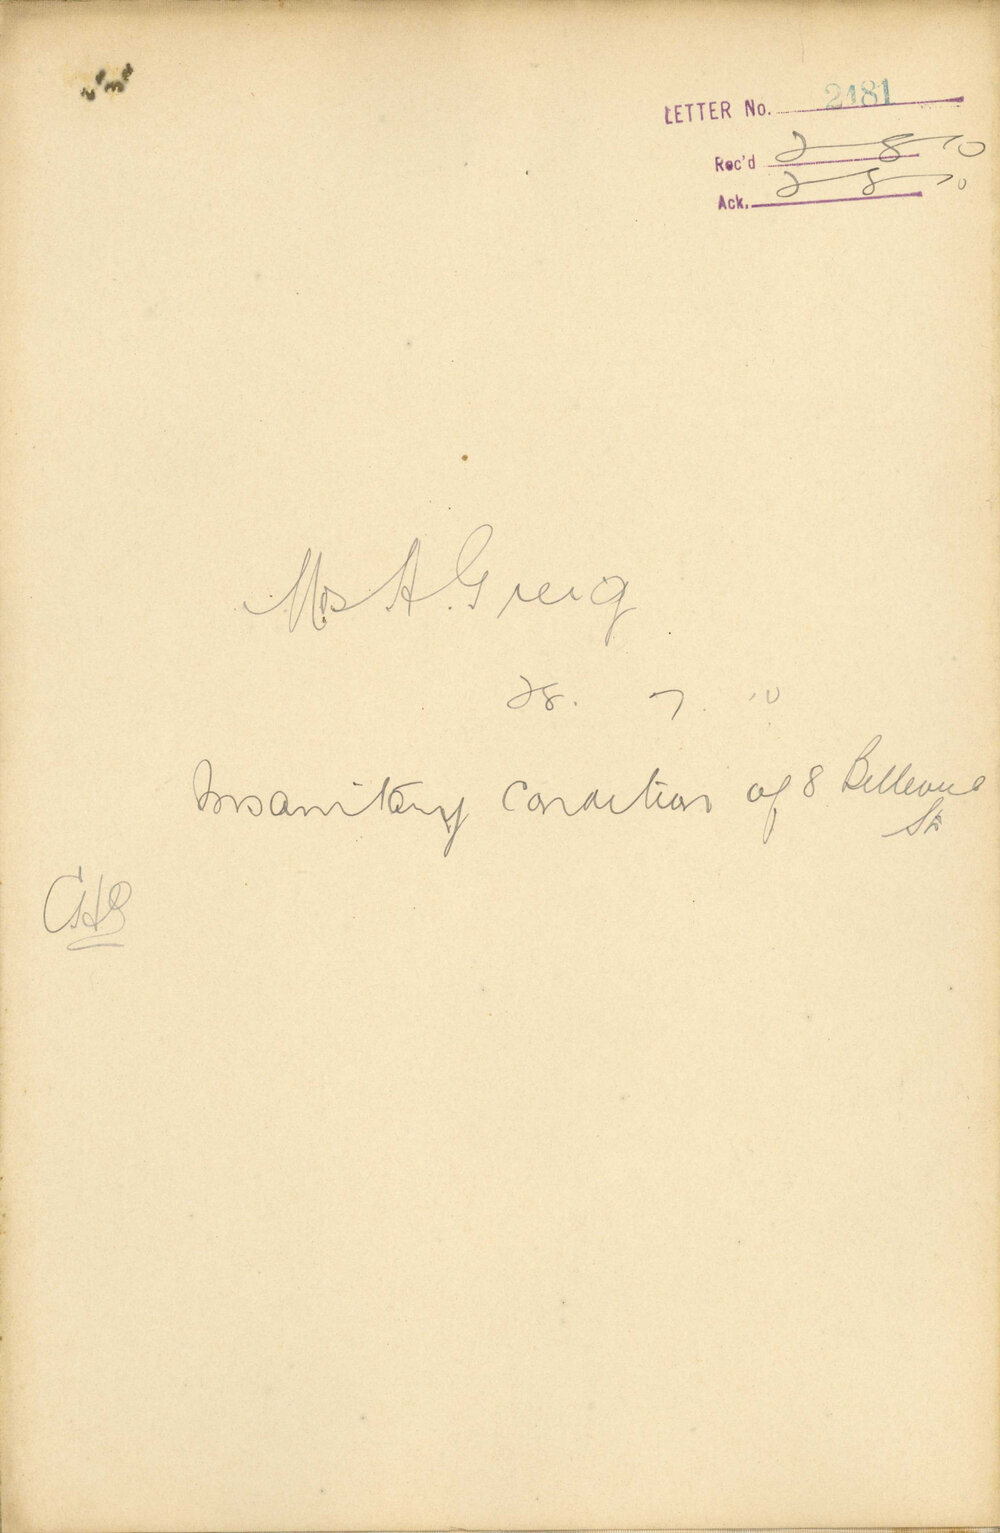 LETTER No. 2181
Rec'd 2 - 8 - 10
Ack. 2 - 8 - 10
Mrs A. Greig
28. 7. 10
Insanitary Condition of 8 Bellevue
St